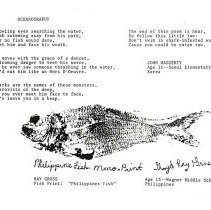 OCEANOGRAPHY
owling eyes searching the water,
sh swimming away from his path,
r no fish would dare.
et him and face his wrath.
moves with the grace of a dancer,
looming danger to test his nerve.
he ever saw someone thrashing in the water,
d eat him like an Hors D'Oeuvre.
arks are the names of these monsters,
errorists of the deep,
you ever meet him face to face,
's leave you in a heap.
The end of this poem is near,
So follow this little law:
Don't swim in shark-infested
Cause you could be eaten raw.
JOHN HAGGERTY
Age 13--Seoul Elementary
Korea
Philippine Fish Mono Print
RAY GROSS
Fish Print: "Philippines Fish"
Age 13--Wagner Middle Sch
Philippines